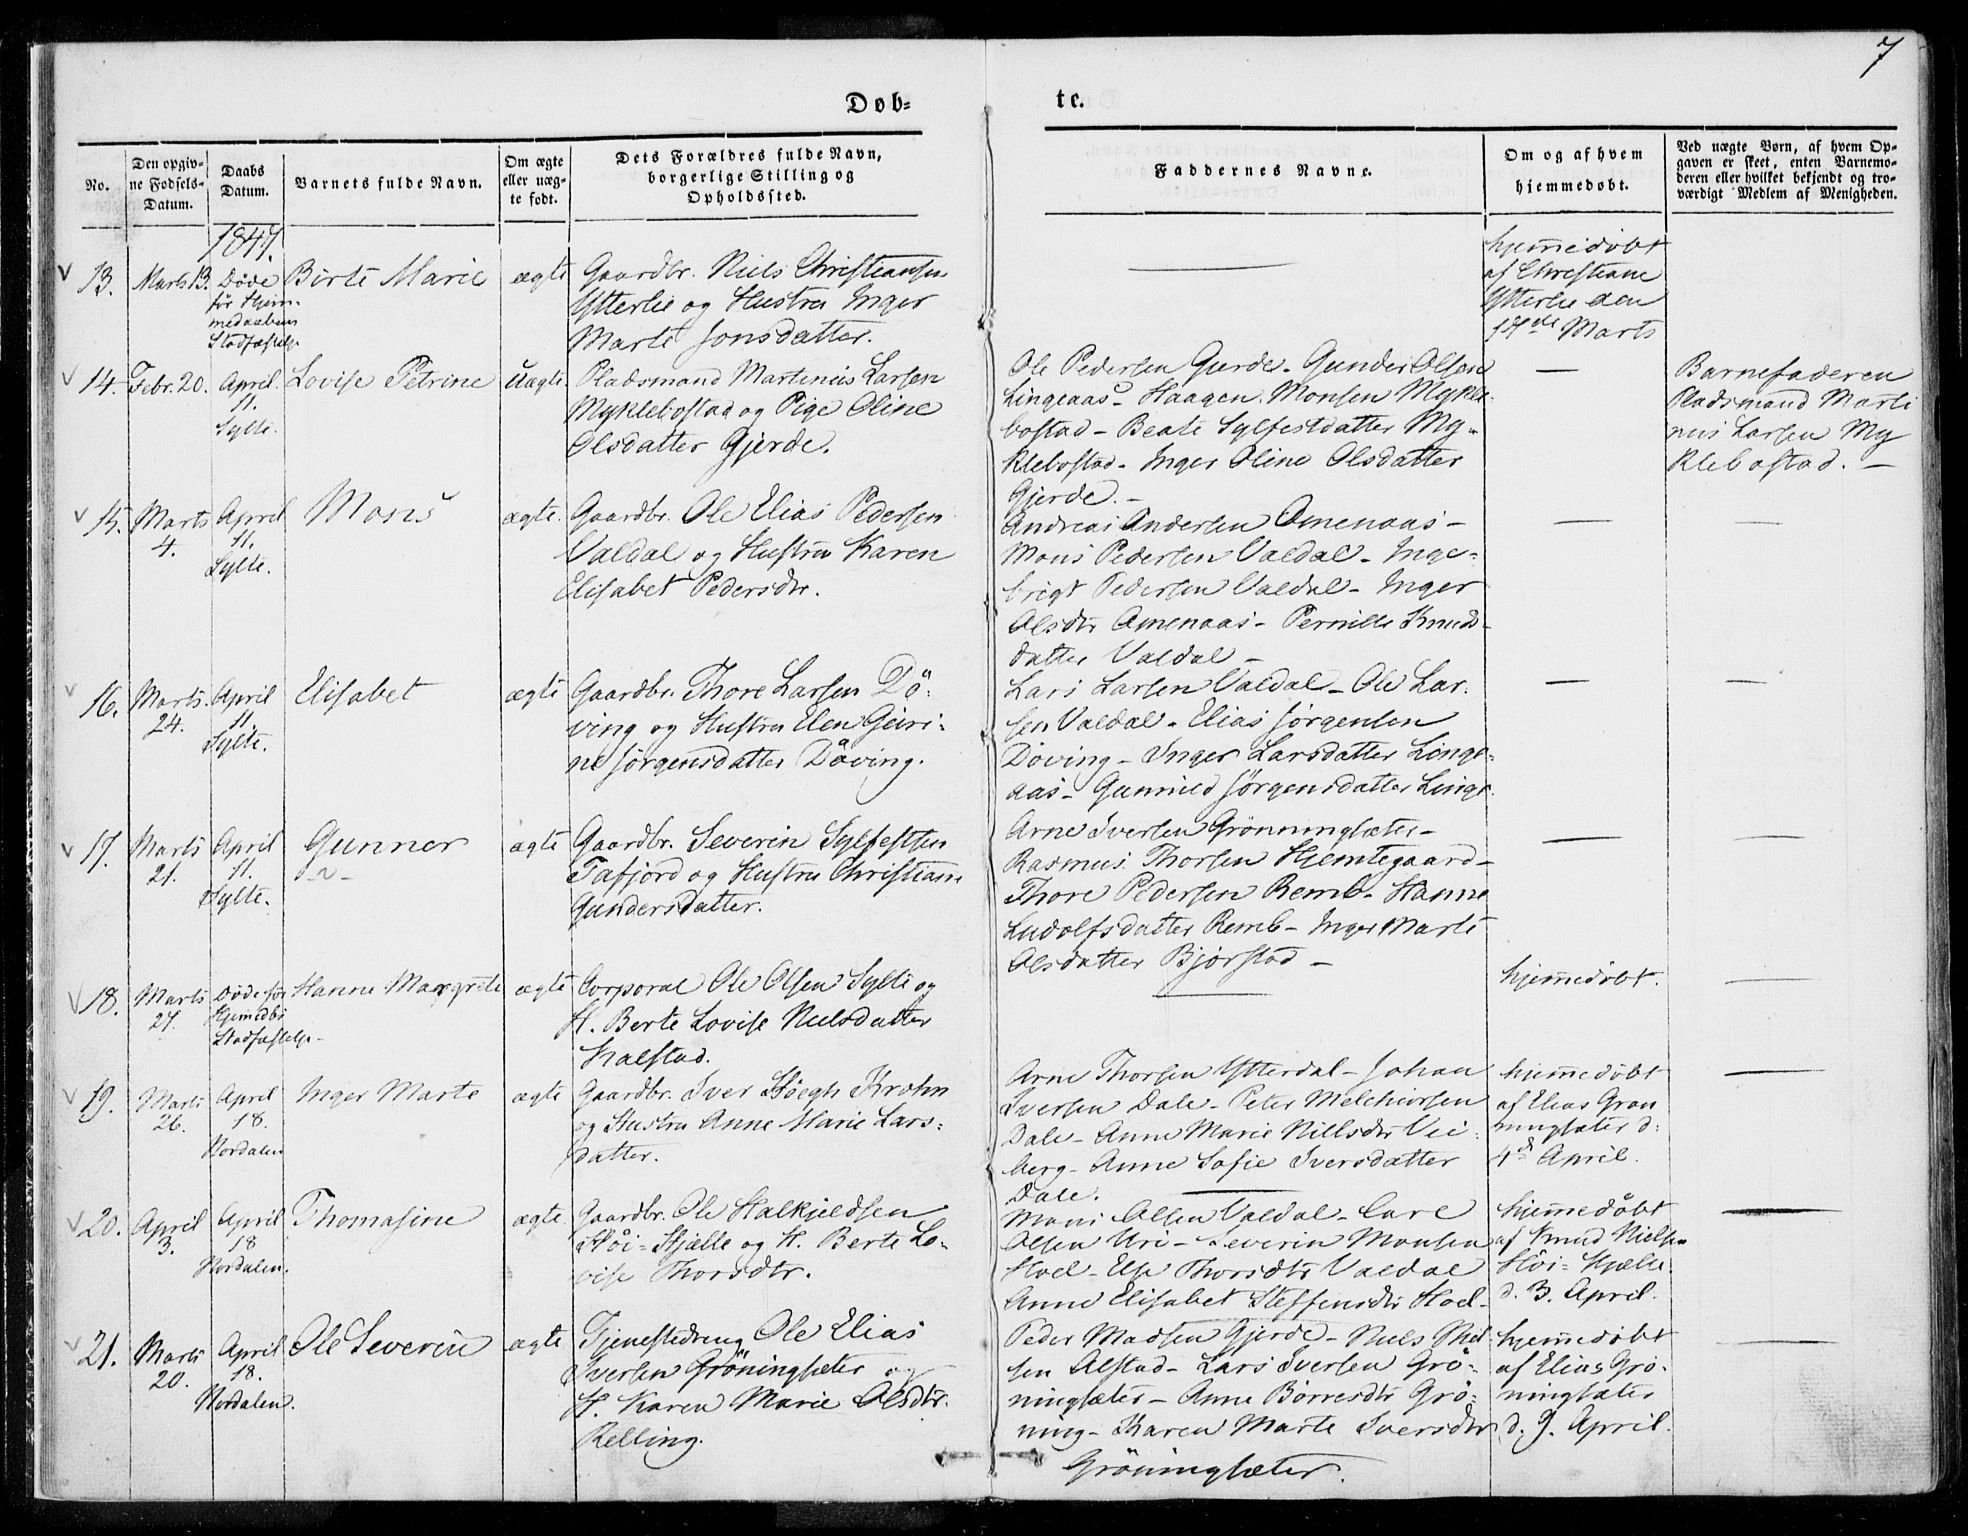 7
Døb-
te.
No.
Den opgiv-
ne Fødsels-
Datum.
Daabs
Datum.
Barnets fulde Navn.
Om ægte
eller uæg-
te født.
Dets Forældres fulde Navn,
borgerlige Stilling og
Opholdssted.
Faddernes Navne.
Om og af hvem
hjemmedøbt.
Ved uægte Børn, af hvem Op-
gaven er skeet, enten Barnemo-
deren eller hvilket bekjendt og tro-
værdigt Medlem af Menigheden.
1847.
13.
Marts 13.
Døde
før Hjem-
medaabens
Stadfæstelse
Birte Marie
ægte
Gaardbr. Niels Christiansen
Ytterlie og Hustru Inger
Marte Jonsdatter.
hjemmedøbt
af Christiane
Ytterlie den
Marts
14.
Febr. 20.
April
11.
Sylte.
Lovise Petrine
Uægte.
Pladsmand Martinus Larsen
Myklebostad og Pige Oline
Olsdatter Gjerde.
Ole Pedersen Gjerde - Gunder Olsen
Lingeaas - Haagen Monsen Mykle-
bostad - Beate Sylfestdatter My-
klebostad - Inger Oline Olsdatter
Gjerde. -
Barnefaderen
Pladsmand Marti
nus Larsen My
klebostad. -
15.
Marts
4.
April
11.
Sylte.
Mons
ægte.
Gaardbr. Ole Elias Pedersen
Valdal og Hustru Karen
Elisabet Pedersdtr.
Andreas Andersen Omenaas -
Mons Pedersen Valdal - Inge-
brigt Pedersen Valdal - Inger
Olsdtr Omenaas - Pernille Knuds-
datter Valdal -
16.
Marts
24.
April
11.
Sylte.
Elisabet
ægte
Gaardbr. Thore Larsen Dö-
ving og Hustru Elen Guri-
ne Jørgensdatter Döving.
Lars Larsen Valdal - Ole Lar-
sen Valdal - Elias Jørgensen
Döving - Inger Larsdatter Linge-
aas - Gunnild Jørgensdatter Linge.
17.
Marts
21.
April
11.
Sylte.
Gunner
ægte
Gaardbr. Severin Sylfestsen
Tafjord og Hustru Christiane
Gundersdatter.
Arne Iversen Grønningsæter -
Rasmus Thorsen Hjemtegaard -
Thore Pedersen Remb - Hanne
Ludolfsdatter Remb - Inger Marte
Olsdatter Bjørstad -
18.
Marts
27.
Døde før
Hjemmedbs
Stadfæstelse -
Hanne Margrete
ægte
Corporal Ole Olsen Sylte og
H. Berte Lovise Nielsdatter
Kalstad.
hjemmedøbt.
19.
Marts
26.
April
18.
Nordalen
Inger Marte
ægte
Gaardbr. Iver Høegh Krohn
og Hustru Anne Marie Lars-
datter.
Arne Thorsen Ytterdal - Johan
Iversen Dale - Peter Melchiorsen
Dale - Anne Marie Nillsdtr Vei-
berg - Anne Sofie Iversdatter
Dale.
hjemmedøbt
af Elias Grøn
ningsæter d:
4de April.
20.
April
3.
April
18
Nordalen.
Thomasine
ægte
Gaardbr. Ole Halkjeldsen
Høi-Hjelle og H. Berte Lo-
vise Thorsdtr.
Mons Olsen Valdal - Carl
Olsen Uri - Severin Monsen
Hoel - Else Thorsdtr Valdal
Anne Elisabet Steffensdtr Hoel -
hjemmedøbt
af Knud Nielsen
Høi-Hjelle.
d. 3. April.
21.
Marts
20.
April
18.
Nordalen.
Ole Severin
ægte
Tjenestedreng Ole Elias
Iversen Gröningsæter og
H. Karen Marie Olsdtr.
Relling.
Peder Madsen Gjerde - Niels Niel-
sen Alstad - Lars Iversen Grö-
ningsæter - Anne Børresdtr Grö-
ning - Karen Marte Iversdtr
Gröningsæter.
hjemmedøbt
af Elias Grö-
ningsæter
d. 9. April.